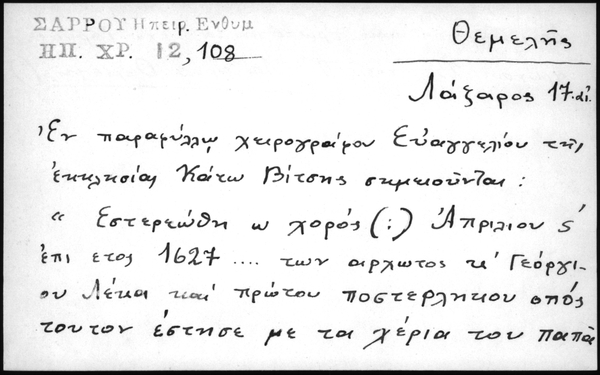 ΣΑΡΡΟΥ Ηπειρ. Ενθυμ
ΗΠ. ΧΡ. 12, 108
Θεμελῆς
Λάζαρος 17.αἰ.
Ἐν παραφύλλῳ χειρογράφου Εὐαγγελίου τῆς
ἐκκλησίας Κάτω Βίτσης σημειοῦνται:
« Εστερεώθη ω χορός (:) Ἀπριλιου ς΄
ἐπι ετος 1627 .... των αρχωτος κ' Γεόργι-
ου Λέκα καὶ πρώτου ποστερληκου οπός
τουτον έστησε με τα χέρια του παπᾶ